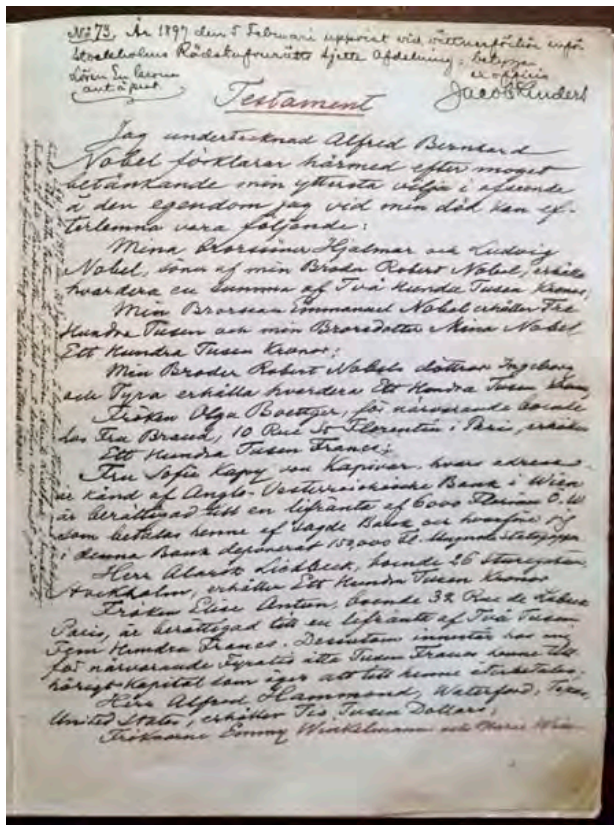 No 73, År 1897 den 5 Februari uppvist vid vittnesförhör inför
Stockholms Rådstufvurätts sjette Afdelning; betygar
Jacob Lindert
Testament
Jag undertecknad Alfred Bernhard
Nobel förklarar härmed efter moget
betänkande min yttersta vilja i afseende
å den egendom jag vid min död kan ef-
terlemna vara följande:
Mina Brorsöner Hjalmar och Ludvig
Nobel, söner af min Broder Robert Nobel, erhålla
hvardera en summa af Två Hundra Tusen Kronor;
Min Brorson Emmanuel Nobel erhåller Tre
Hundra Tusen och min Brorsdotter Mina Nobel
Ett Hundra Tusen Kronor;
Min Broder Robert Nobels döttrar Ingeborg
och Tyra erhålla hvardera Ett Hundra Tusen Kronor
Fröken Olga Boettger, för närvarande boende
hos Fru Brand, 10 Rue St Florentin i Paris, erhåller
Ett Hundra Tusen Francs;
Fru Sofie Kapy von Kapivar, hvars adress
är känd af Anglo-Oesterreichische Bank i Wien
är berättigad till en lifränta af 6000 Florins Ö.W.
som betalas henne af sagde Bank och hvarföre jag
i denna Bank deponerat 150,000 Fl. i Ungerska statspapper
Herr Alarik Liedbeck, boende 26 Sturegatan,
Stockholm, erhåller Ett Hundra Tusen Kronor
Fröken Elise Antun, boende 32 Rue de Lubeck
Paris, är berättigad till en lifränta af Två Tusen
Fem Hundra Francs. Dessutom innestår hos mig
för närvarande Fyratio åtta Tusen Francs henne till-
hörigt Kapital som äger att till henne återbetalas;
Herr Alfred Hammond, Waterford, Texas,
United States, erhåller Tio Tusen Dollars;
Fröknarne Emmy Winkelmann och Marie Win-